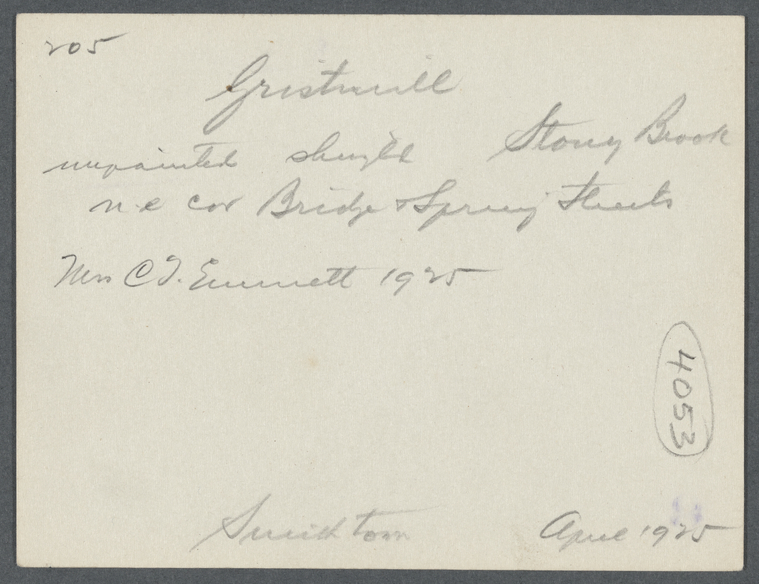 205
Gristmill
unpainted shingle Stony Brook
n.e cor Bridge & Spring Streets
Mrs C.T. Emmett 1925
4053
Smithtown April 1925